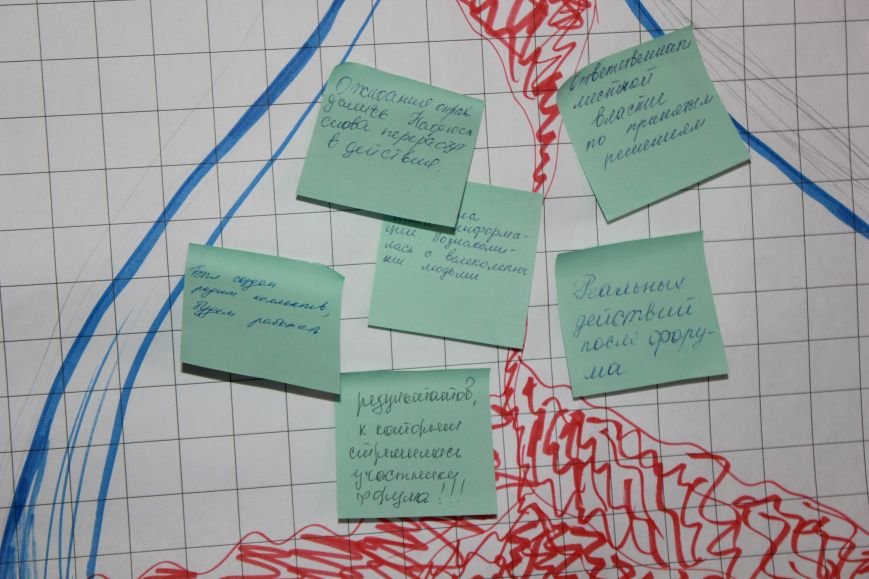 Ожидания оправ-
дались. Надеюсь
слова перерастут
в действия.
Ответственнат
местной
власти
по принятым
решениям
информа-
ции. Познакоми-
лась с великолепны
ми людьми
создам
коллектив,
будем работать
Реальных
действий
после фору-
ма
результатов,
к которым
стремились
участники
форума!!!